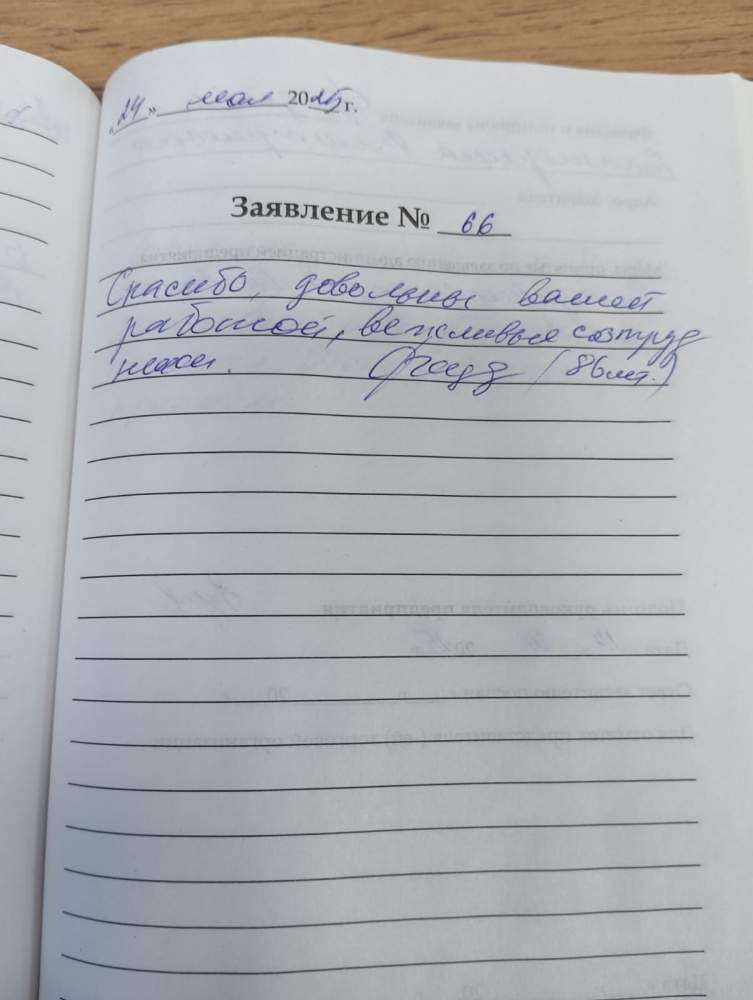 „24" мая 2025 г.
Заявление № 66
Спасибо, довольны вашей
работой, вежливые сотруд
ники. (86 лет.)